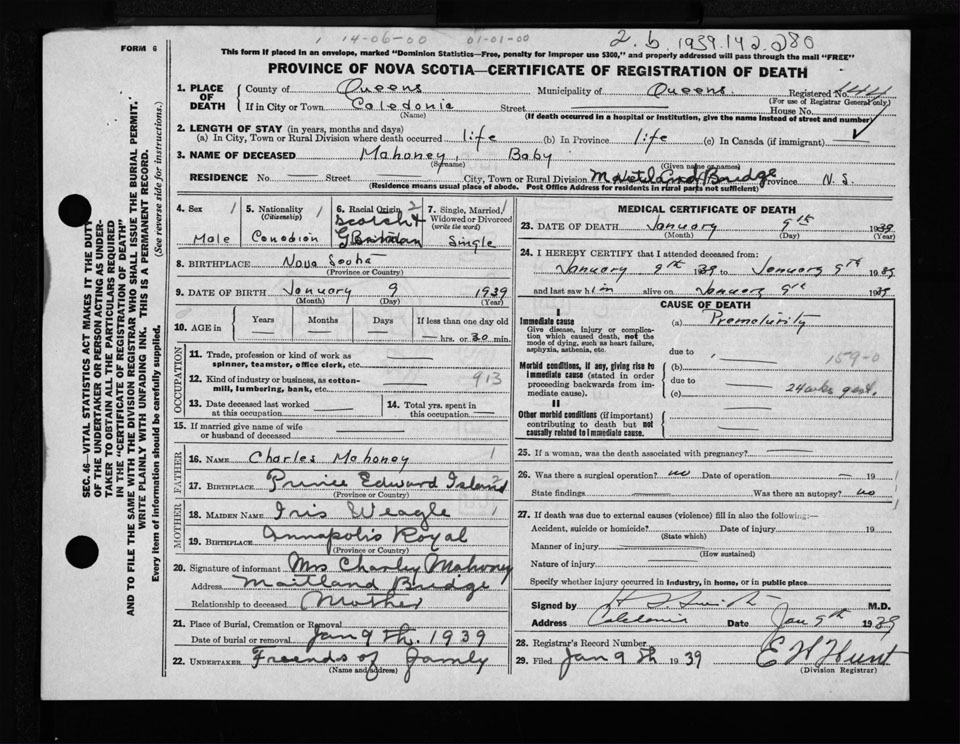 14-06-00 01-01-00 2.b 1939.142.280
FORM 6
This form if placed in an envelope, marked "Dominion Statistics—Free, penalty for improper use $300," and properly addressed will pass through the mail "FREE"
PROVINCE OF NOVA SCOTIA—CERTIFICATE OF REGISTRATION OF DEATH
1. PLACE OF DEATH
County of Queens Municipality of Queens Registered No. 144
(For use of Registrar General only)
If in City or Town Caledonia Street House No.
(Name) (If death occurred in a hospital or institution, give the name instead of street and number)
2. LENGTH OF STAY (in years, months and days)
(a) In City, Town or Rural Division where death occurred life (b) In Province life (c) In Canada (if immigrant)
3. NAME OF DECEASED Mahoney, Baby
(Surname) (Given name or names)
RESIDENCE No. Street City, Town or Rural Division Maitland Bridge Province N. S.
(Residence means usual place of abode. Post Office Address for residents in rural parts not sufficient)
4. Sex 1 Male
5. Nationality 1 (Citizenship) Canadian
6. Racial Origin 2 Scotch &
7. Single, Married/ Widowed or Divorced (write the word) Single
8. BIRTHPLACE Nova Scotia
(Province or Country)
9. DATE OF BIRTH January 9 1939
(Month) (Day) (Year)
10. AGE in Years Months Days If less than one day old
hrs. or 30 min.
OCCUPATION
11. Trade, profession or kind of work as spinner, teamster, office clerk, etc.
12. Kind of industry or business, as cotton-mill, lumbering, bank, etc. 913
13. Date deceased last worked at this occupation
14. Total yrs. spent in this occupation
15. If married give name of wife or husband of deceased
FATHER
16. NAME Charles Mahoney 1
17. BIRTHPLACE Prince Edward Island 2
(Province or Country)
MOTHER
18. MAIDEN NAME Iris Weagle 1
19. BIRTHPLACE Annapolis Royal
(Province or Country)
20. Signature of informant Mrs Charley Mahoney
Address Maitland Bridge
Relationship to deceased Mother
21. Place of Burial, Cremation or Removal
Date of burial or removal Jan 9 th. 1939
22. UNDERTAKER Freends of famly
(Name and address)
MEDICAL CERTIFICATE OF DEATH
23. DATE OF DEATH January 9th 1939
(Month) (Day) (Year)
24. I HEREBY CERTIFY that I attended deceased from:
January 9th 1939 to January 9th 1939
and last saw him alive on January 9th 1939
CAUSE OF DEATH
I
Immediate cause (a) Prematurity
Give disease, injury or complication which caused death, not the mode of dying, such as heart failure, asphyxia, asthenia, etc.
due to
Morbid conditions, if any, giving rise to immediate cause (stated in order proceeding backwards from immediate cause).
(b) 159-0
due to
(c) 24 wks gest.
II
Other morbid conditions (if important) contributing to death but not causally related to immediate cause.
25. If a woman, was the death associated with pregnancy?
26. Was there a surgical operation? no Date of operation 19 1
State findings Was there an autopsy? no
27. If death was due to external causes (violence) fill in also the following:—
Accident, suicide or homicide? Date of injury 19
(State which)
Manner of injury
(How sustained)
Nature of injury
Specify whether injury occurred in industry, in home, or in public place
Signed by M.D.
Address Caledonia Date Jan 9th 1939
28. Registrar's Record Number
29. Filed Jan 9 th 1939 E W Hunt
(Division Registrar)
SEC. 46—VITAL STATISTICS ACT MAKES IT THE DUTY
OF THE UNDERTAKER OR PERSON ACTING AS UNDER-
TAKER TO OBTAIN ALL THE PARTICULARS REQUIRED
IN THE "CERTIFICATE OF REGISTRATION OF DEATH"
AND TO FILE THE SAME WITH THE DIVISION REGISTRAR WHO SHALL ISSUE THE BURIAL PERMIT.
WRITE PLAINLY WITH UNFADING INK. THIS IS A PERMANENT RECORD.
Every item of information should be carefully supplied. (See reverse side for instructions.)